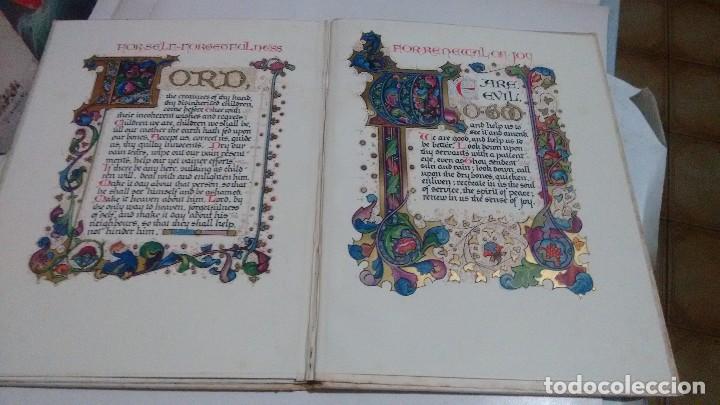 FOR SELF-FORGETFULNESS
LORD,
the creatures of thy hand,
thy disinherited children,
come before Thee with
their incoherent wishes and regrets:
Children we are, children we shall be,
till our mother the earth hath fed upon
our bones. Accept us, correct us, guide
us, thy guilty innocents. Dry our
vain tears, wipe out our vain resent-
ments, help our yet vainer efforts.
If there be any here, sulking as children
will, deal with and enlighten him.
Make it day about that person, so that
he shall see himself and be ashamed.
Make it heaven about him, Lord, by
the only way to heaven, forgetfulness
of self, and make it day about his
neighbours, so that they shall help,
not hinder him.
FOR RENEWAL OF JOY
WE ARE
EVIL,
O GOD
and help us to
see it and amend.
We are good, and help us to
be better. Look down upon
thy servants with a patient
eye, even as Thou sendest
sun and rain; look down, call
upon the dry bones, quicken,
enliven; recreate in us the soul
of service, the spirit of peace;
renew in us the sense of joy.
todocoleccion